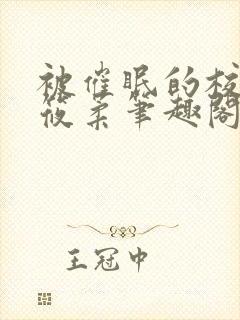 被催眠的校
筱柔笔趣阁
王冠中